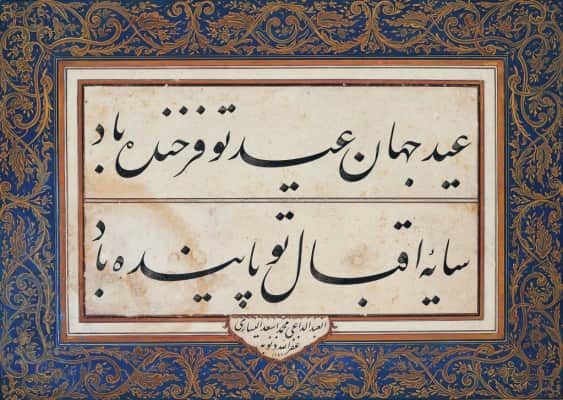 عید جهان عید تو فرخنده باد
سایهٔ اقبال تو پاینده باد
العبد الداعی محمد اسعد الیساری
غفر الله ذنوبه